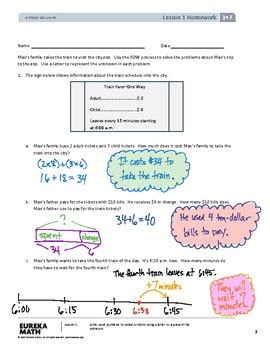 A STORY OF UNITS
Lesson 1 Homework
3•7
Name
Date
Max's family takes the train to visit the city zoo. Use the RDW process to solve the problems about Max's trip
to the zoo. Use a letter to represent the unknown in each problem.
1. The sign below shows information about the train schedule into the city.
Train Fare—One Way
Adult $ 8
Child $ 6
Leaves every 15 minutes starting
at 6:00 a.m.
a. Max's family buys 2 adult tickets and 3 child tickets. How much does it cost Max's family to take the
train into the city?
(2x8)+(3x6)
16+18=34
It costs $34 to
take the train.
b. Max's father pays for the tickets with $10 bills. He receives $6 in change. How many $10 bills does
Max's father use to pay for the train tickets?
?
spent
change
34
6
34+6=40
He used 4 ten-dollar
bills to pay.
c. Max's family wants to take the fourth train of the day. It's 6:38 a.m. now. How many minutes do
they have to wait for the fourth train?
The fourth train leaves at 6:45.
+7
minutes
6:00
6:15
6:30
6:38
6:45
They will
wait 7
minutes.
EUREKA
MATH
Lesson 1: